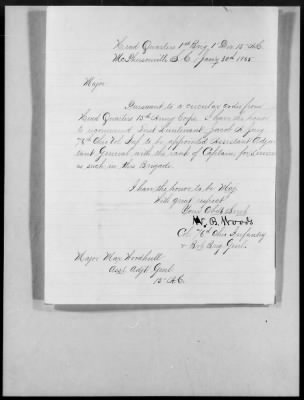 Head Quarters 1st Brig. 1 Div. 15 A.C.
McPhersonville S.C. Jany 30th 1865
Major
Pursuant to a circular order from
Head Quarters 15th Army Corps, I have the honor
to recommend First Lieutenant Jacob A. Jury
76 Ohio Vol. Inf. to be appointed Assistant Adju
tant General with the rank of Captain, for
as such in this Brigade.
I have the honor to be Maj
With great respect
Your Obdt Servt
W. B. Woods
Col. 76th Ohio Infantry
& Bvt Brig Genl.
Major Max Woodhull
Asst. Adjt Genl.
15 A.C.